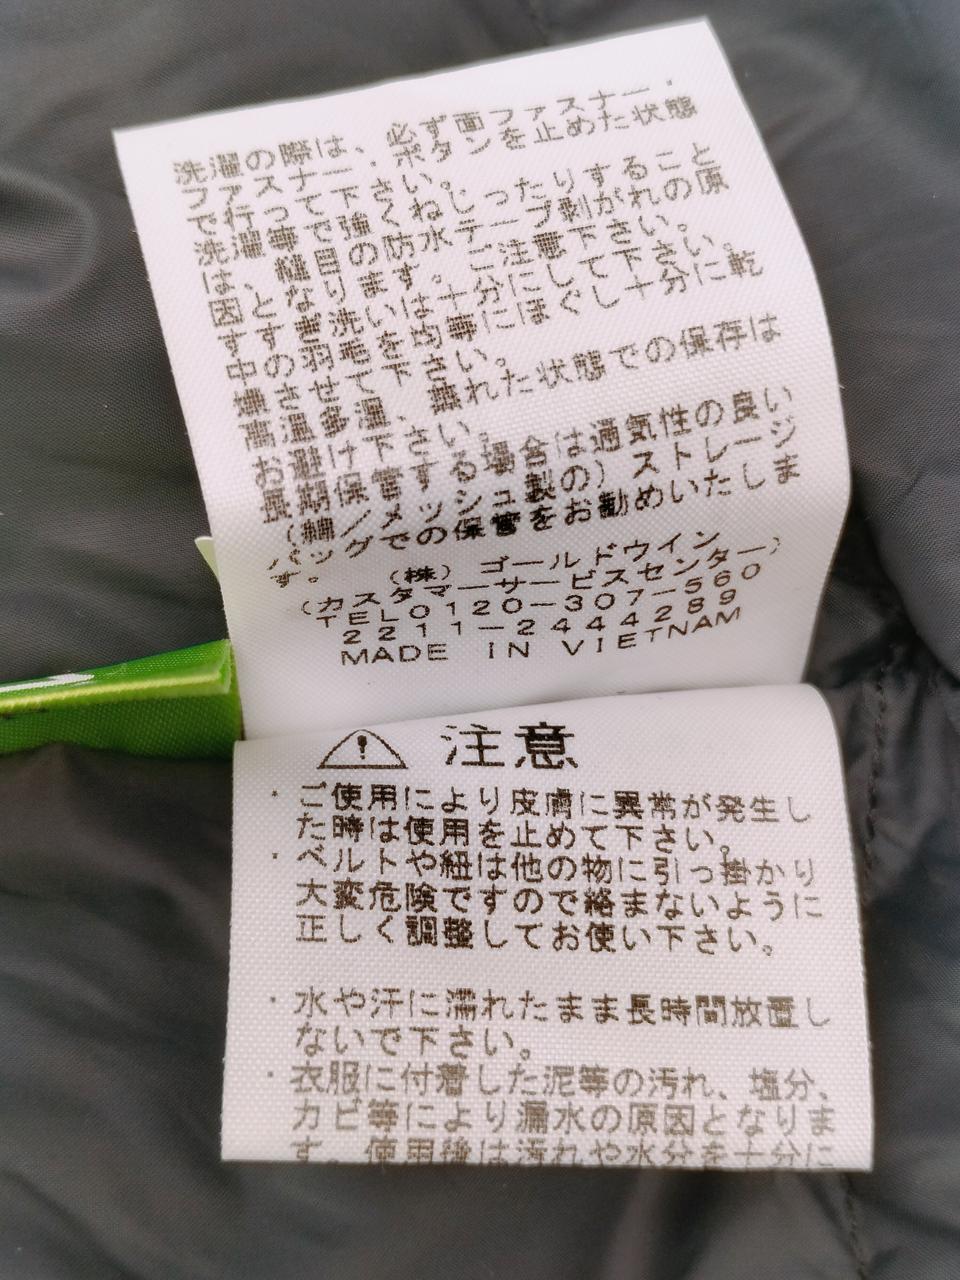 洗濯の際は、必ず面ファスナー・
ファスナー・ボタンを止めた状態
で行って下さい。
洗濯等で強くねじったりすること
は、縫目の防水テープ剥がれの原
因となります。ご注意下さい。
すすぎ洗いは十分にして下さい。
中の羽毛を均等にほぐし十分に乾
燥させて下さい。
高温多湿、濡れた状態での保存は
お避け下さい。
長期保管する場合は通気性の良い
(綿/メッシュ製の)ストレージ
バッグでの保管をお勧めいたしま
す。
(株)ゴールドウイン
(カスタマーサービスセンター)
TEL0120-307-560
2211-2444289
MADE IN VIETNAM
注意
・ご使用により皮膚に異常が発生し
た時は使用を止めて下さい。
・ベルトや紐は他の物に引っ掛かり
大変危険ですので絡まないように
正しく調整してお使い下さい。
・水や汗に濡れたまま長時間放置し
ないで下さい。
・衣服に付着した泥等の汚れ、塩分、
カビ等により漏水の原因となりま
す。使用後は汚れや水分を十分に